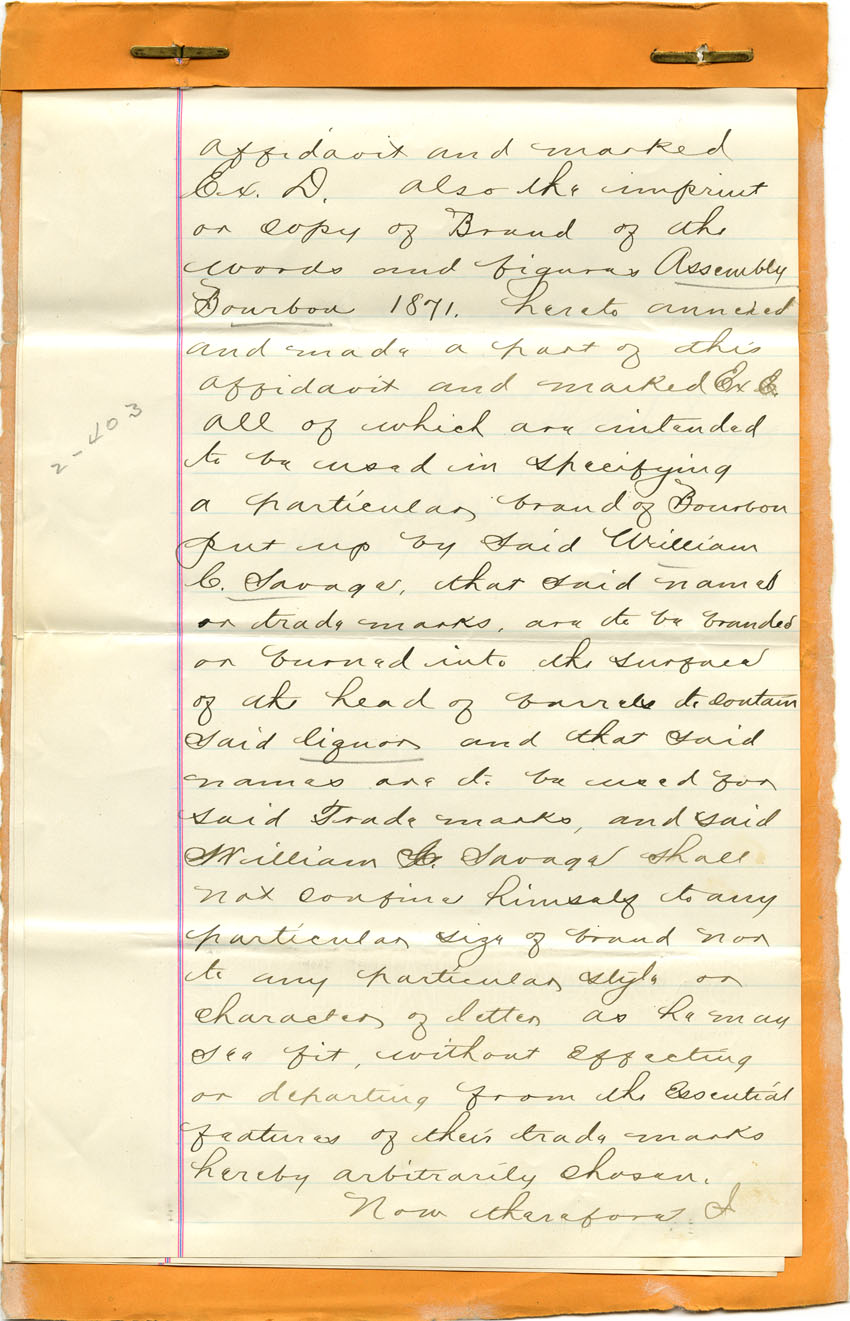 affidavit and marked
Ex. D. also the imprint
or copy of Brand of the
words and figures Assembly
Bourbon 1871. hereto annexed
and made a part of this
affidavit and marked Ex E.
all of which are intended
to be used in specifying
a particular brand of Bourbon
put up by said William
C. Savage, that said names
or trade marks, are to be branded
or burned into the surface
of the head of barrels to contain
said liquor and that said
names are to be used for
said Trade marks, and said
William C. Savage shall
not confine himself to any
particular size of brand nor
to any particular style or
character of letter as he may
see fit, without effecting
or departing from the Essential
features of their trade marks
hereby arbitrarily chosen.
Now therefore I
2-403